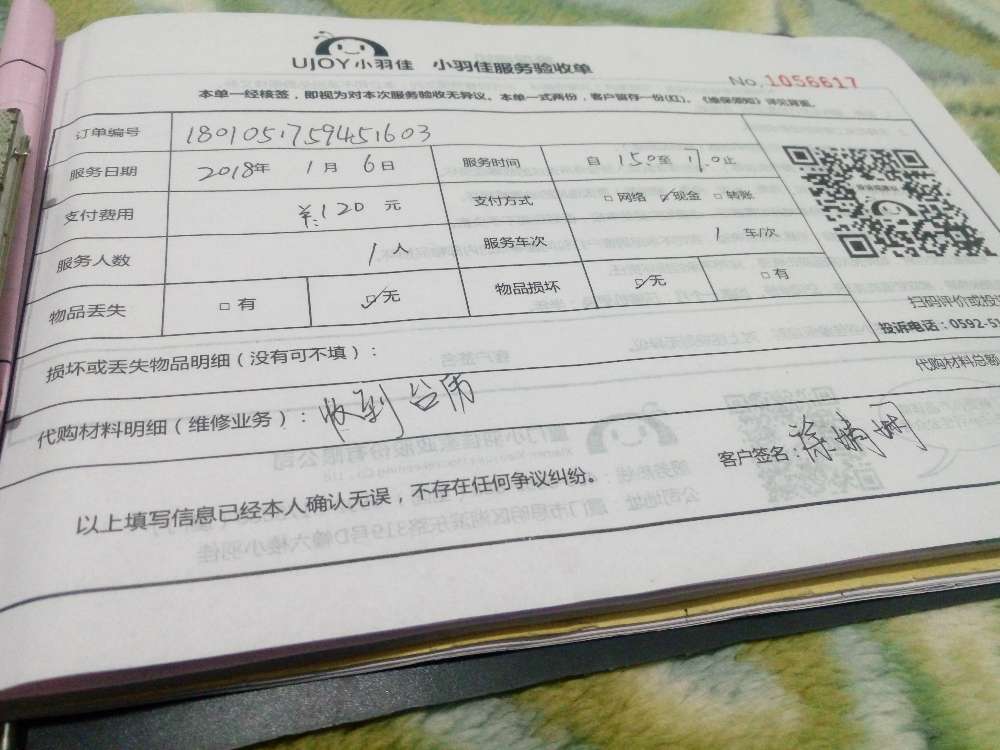 UJOY小羽佳 小羽佳服务验收单
No.1056617
本单一经核签，即视为对本次服务验收无异议。本单一式两份，客户留存一份(红)。《维保须知》详见背面。
订单编号 180105175945160３
服务日期 2018年 1月 6日 服务时间 自 15.0至 17.0止
支付费用 ￥:120 元 支付方式 □网络 ☑现金 □转账
服务人数 1人 服务车次 1 车/次
物品丢失 □有 ☑无 物品损坏 ☑无 □有
扫码评价或投
投诉电话：0592-5
损坏或丢失物品明细（没有可不填）：
代购材料总额
代购材料明细（维修业务）：收到台历
客户签名：
以上填写信息已经本人确认无误，不存在任何争议纠纷。